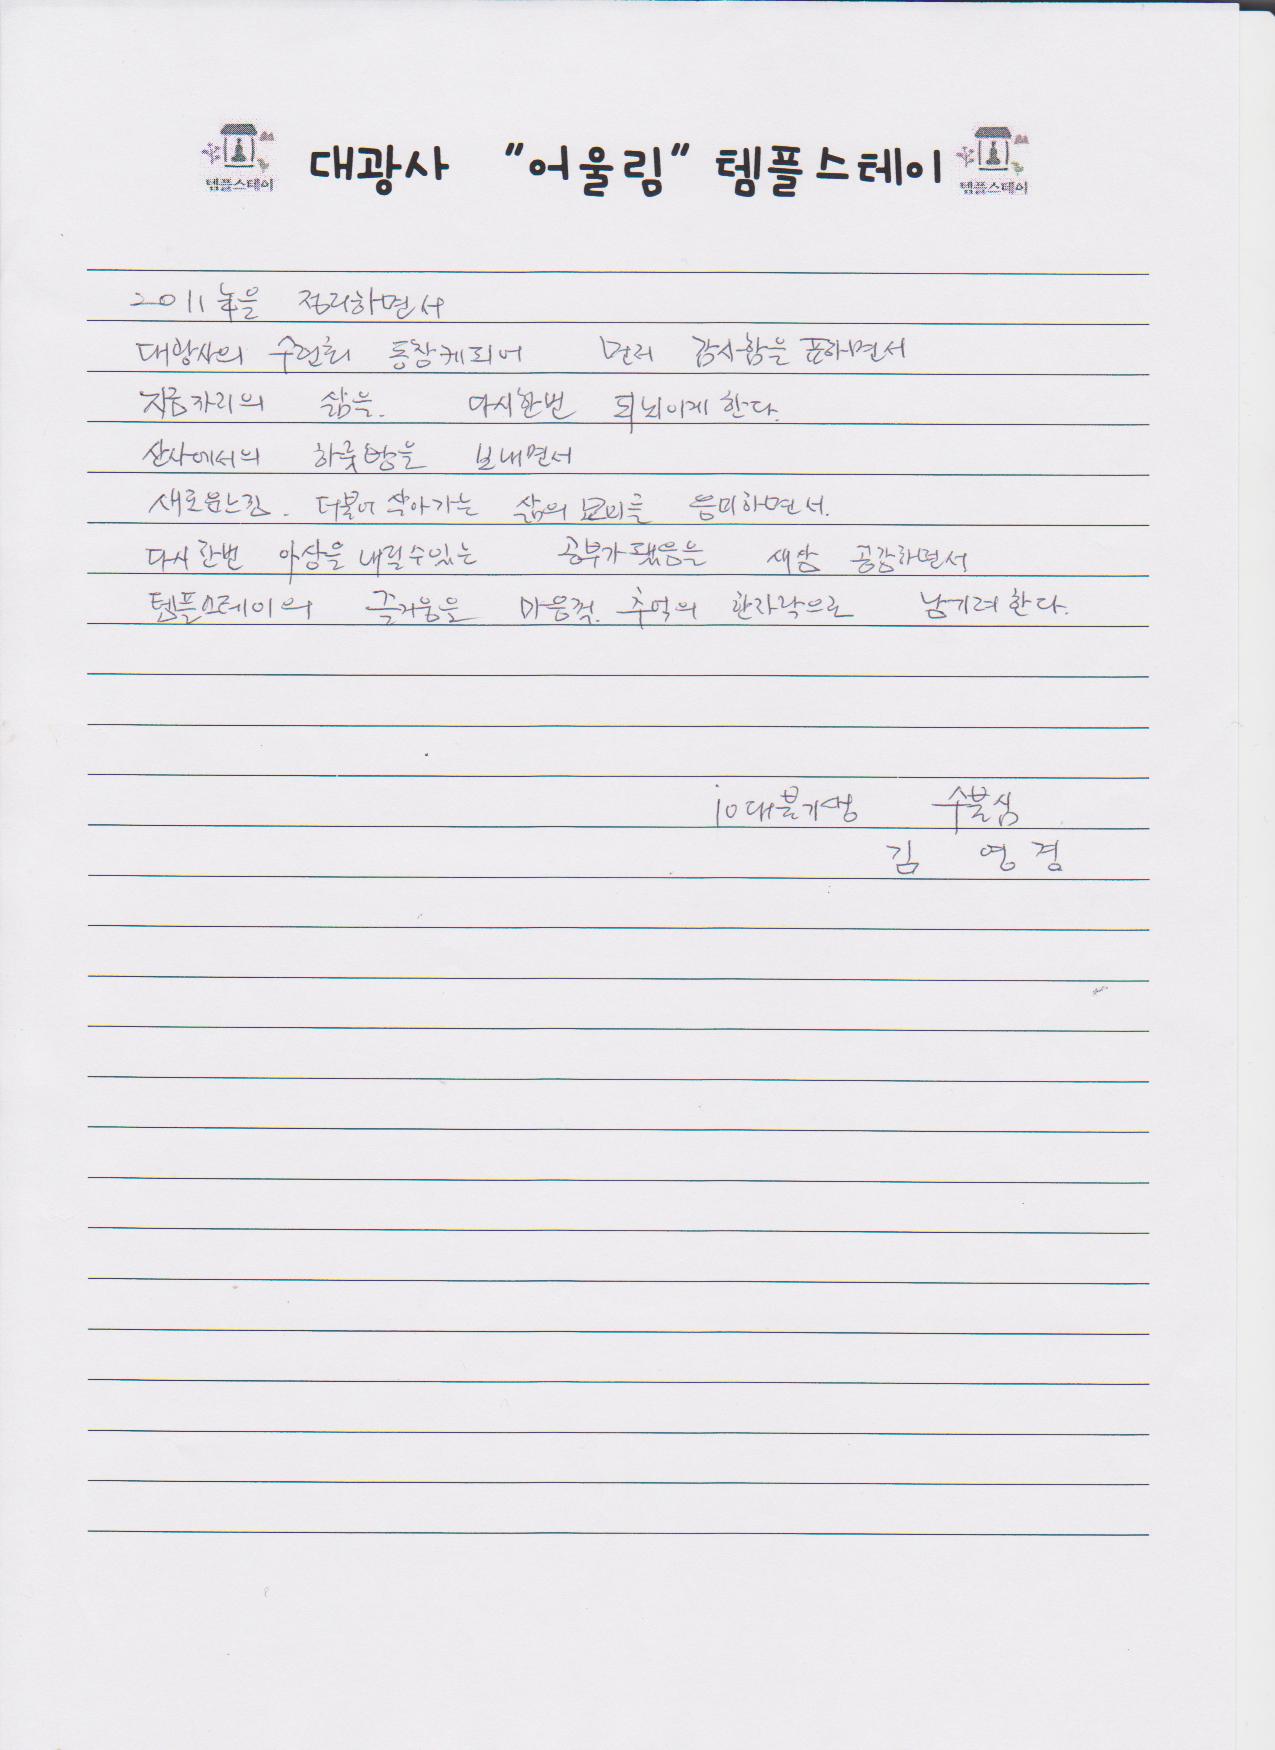 템플스테이 대광사 "어울림" 템플스테이 템플스테이
2011年을 정리하면서
대광사의 수련회 동참케되어 먼저 감사함을 표하면서
지금자리의 삶을. 다시한번 되뇌이게 한다.
산사에서의 하룻밤을 보내면서
새로운느낌. 더불어 살아가는 삶의 묘미를 음미하면서.
다시한번 아상을 내릴수있는 공부가 됐음을 새삼 공감하면서
템플스테이의 즐거움을 마음껏. 추억의 한자락으로 남기려 한다.
10대불가명 수불심
김 영 경